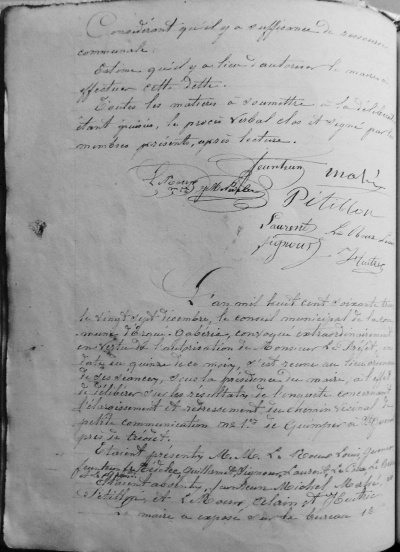 Considérant qu'il y a suffisance de ressources
communale.
Estime qu'il y a lieu d'autoriser le maire à
effectuer cette dette.
Toutes les matières à soumettre à la délibér
étant épuisées, le procès verbal clos et signé par les
membres présents, après lecture.
Feunteun Mahé
Le Roux
Pétillon
Laurent Le
Signour Huitric
L'an mil huit cent soixante trois
le vingt sept décembre, le conseil municipal de la com
mune d'Ergué-Gabéric, convoqué extraordinairement
en vertu de l'autorisation de Monsieur Le Préfet, en
date du quinze de ce mois, s'est réuni au lieu ordinaire
de ses séances, sous la présidence du maire, à l'effet
de délibérer sur les résultats de l'enquête concernant
l'élargissement et redressement du chemin vicinal de
petite communication de Quimper à
près de
Étaient présents M.M. Le Roux Louis,
Guillaume Signour, Laurent, Le
Étaient absents, Feunteun Michel Mahé,
Pétillon, et Le Roux, Alain et Huitric
Le maire a exposé sur le bureau le